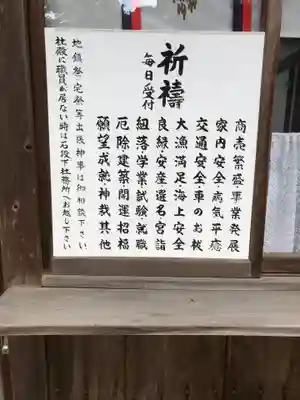 祈禱
毎日受付
商売繁盛・事業発展
家内安全・病気平癒
交通安全・車のお祓
大漁満足・海上安全
良縁・安産・選名・宮詣
紐落・学業・試験・就職
厄除・建築・開運招福
願望成就・神裁其他
地鎮祭・宅祭等出張神事は御相談下さい
社殿に職員が居ない時は石段下社務所へお越し下さい